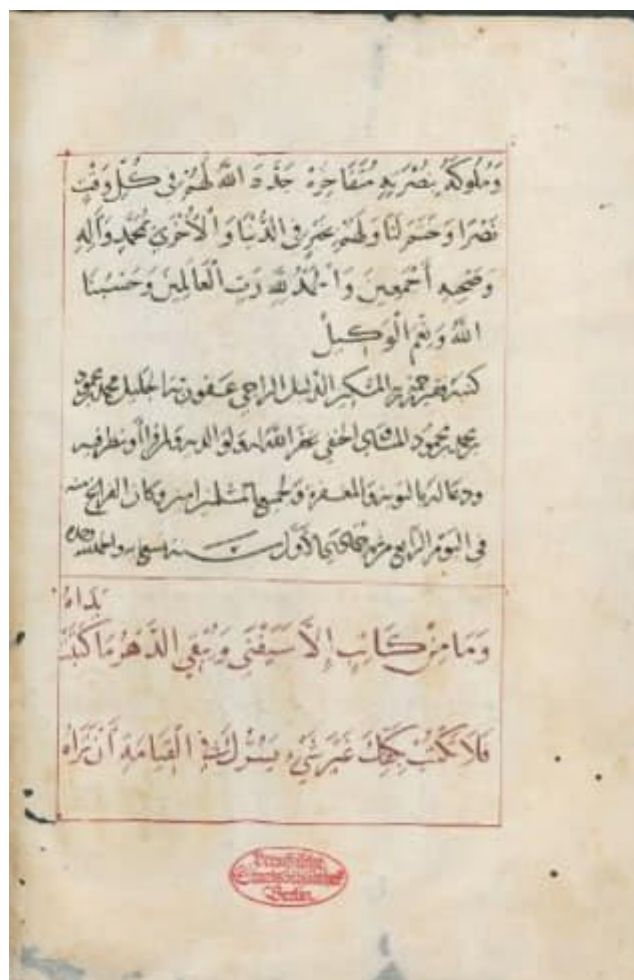 وَمُلُوكُهُ بِنُصْرَتِهِ مُتَفَاخِرَة جَدَّدَ اللهُ لَهُمْ فِي كُلِّ وَقْتٍ
نَصْرًا وَخَتَمَ لَنَا وَلَهُمْ بِخَيْرٍ فِي الدُّنْيَا وَالْأُخْرَى بِمُحَمَّدٍ وَآلِهِ
وَصَحْبِهِ أَجْمَعِينَ وَالْحَمْدُ لِلّٰهِ رَبِّ الْعَالَمِينَ وَحَسْبُنَا
اللهُ وَنِعْمَ الْوَكِيلُ
كتبه فقير رحمة ربه الذليل الراجي عفو ربه الجليل محمد محمود
محمد محمود الحنفي غفر الله له ولوالديه ولمن قرأ أو نظر فيه
ودعا له بالتوبة والمغفرة ولجميع المسلمين امين وكان الفراغ منه
في اليوم الرابع من جمادى الأول سنة
يداه
وَمَا مِنْ كَاتِبٍ إِلَّا سَيَفْنَى وَيُبْقِي الدَّهْرُ مَا كَتَبَتْ
فَلَا تَكْتُبْ بِكَفِّكَ غَيْرَ شَيْءٍ يَسُرُّكَ فِي الْقِيَامَةِ أَنْ تَرَاهُ
Preußische
Staatsbibliothek
Berlin